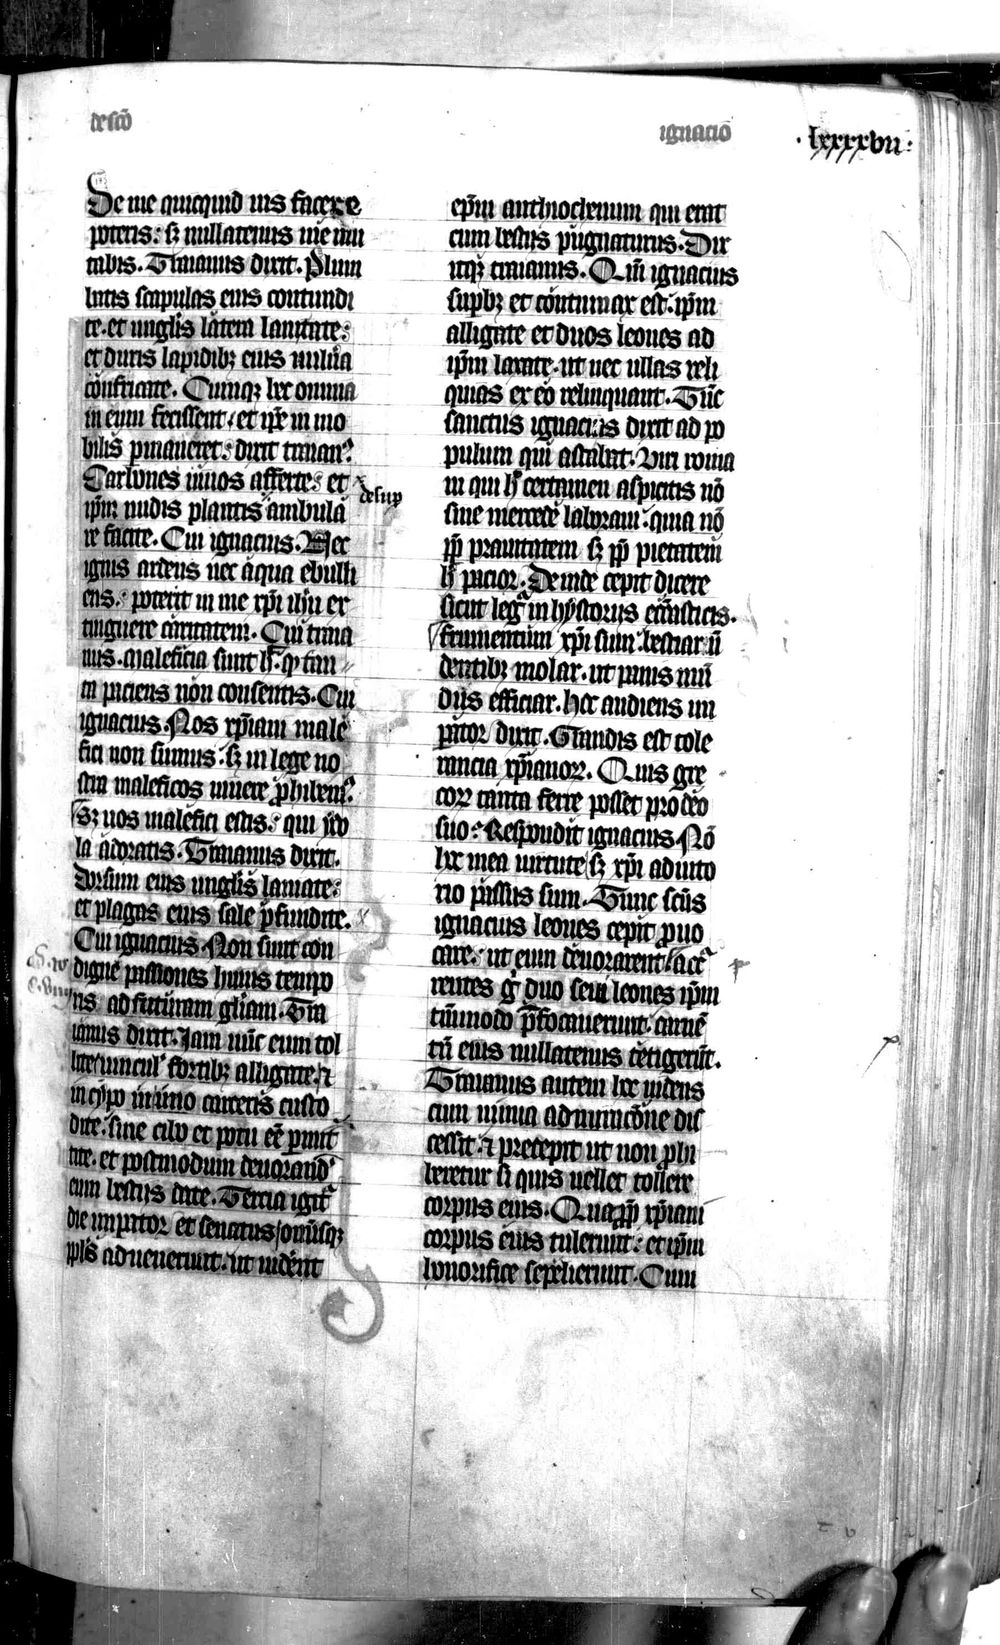 de scō
ignacio
.lxxxxvii.
De me quicquid uis facere
poteris: sꝫ nullatenus me mu
tabis. Traianus dixit. Plum
batis scapulas eius contundi
te. et unglis latera laniate:
et duris lapidibꝫ eius uulnera
confricate. Cumqꝫ hec omnia
in eum fecissent: et ipse in mo
bilis permaneret: dixit traianꝰ
Carbones uiuos afferte: et
desup
ipm nudis plantis ambula
re facite. Cui ignacius. Nec
ignis ardens nec aqua ebulli
ens: poterit in me xpi ihu ex
tinguere caritatem. Cui traia
nus. Maleficia sunt hꝰ. qꝫ tan
ta paciens non consentis. Cui
ignacius. Nos xpiani male
fici non sumus. sꝫ in lege no
stra maleficos uiuere prohibemꝰ
Sꝫ uos malefici estis: qui ydo
la adoratis. Traianus dixit.
Dorsum eius unglis laniate:
et plagas eius sale pfundite.
Cui ignacius. Non sunt con
digne passiones huius tempo
ris ad futuram gliam. Tra
ianus dixit. Iam nūc eum tol
lite uinculꝰ fortibꝫ alligate. ⁊
in cypo in imo carceris custo
dite: sine cibo et potu eē pmit
tite. et postmodum deuorandū
eum bestijs date. Tercia igitur
die imperator et senatus omisqꝫ
ppls aduenerunt. ut uiderent
epm anthiochenum qui erat
cum bestijs pugnaturus. Dix
itqꝫ traianus. Qm ignacius
supbꝫ et contumax est. ipm
alligate et duos leones ad
ipm laxate. ut nec ullas reli
quias ex eo relinquant. Tūc
sanctus ignacius dixit ad po
pulum qui astabat. Viri roma
ni qui hꝰ certamen aspicitis nō
sine mercede laboraui. quia nō
ꝓp prauitatem sꝫ ꝓp pietatem
hꝰ pacior. Deinde cepit dicere
sicut legꝰ in hystoriis ecclīasticis.
frumentum xpi sum. bestiar ū
dentibꝫ molar. ut panis mū
dus efficiar. Hec audiens im
pator dixit. Grandis est tole
rancia xpianorꝝ. Quis gre
corꝝ tanta ferre posset pro deo
suo: Respondit ignacius. Nō
hec mea uirtute sꝫ xpi adiuto
rio passus sum. Tunc scūs
ignacius leones cepit prouo
care: ut eum deuorarent. accꝰ
rentes gͦ duo seui leones ipm
tmmodo pfocauerunt. carnē
tn eius nullatenus tetigerūt.
Traianus autem hec uidens
cum nimia admiracōne dis
cessit. ⁊ precepit ut non prohi
beretur si quis uellet tollere
corpus eius. Quaꝓp xpiani
corpus eius tulerunt: et ipm
honorifice sepelierunt. Cum